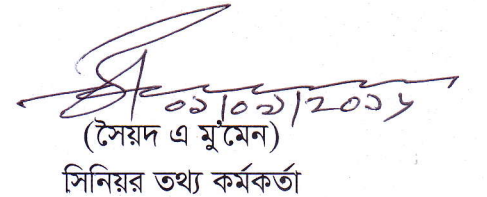 ০১/০১/২০১৮
(সৈয়দ এ মু'মেন)
সিনিয়র তথ্য কর্মকর্তা